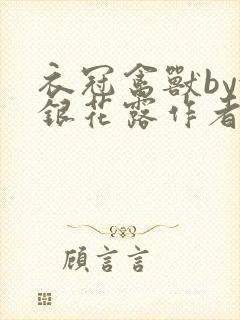 衣冠禽獸by
銀花露作者
顧言言